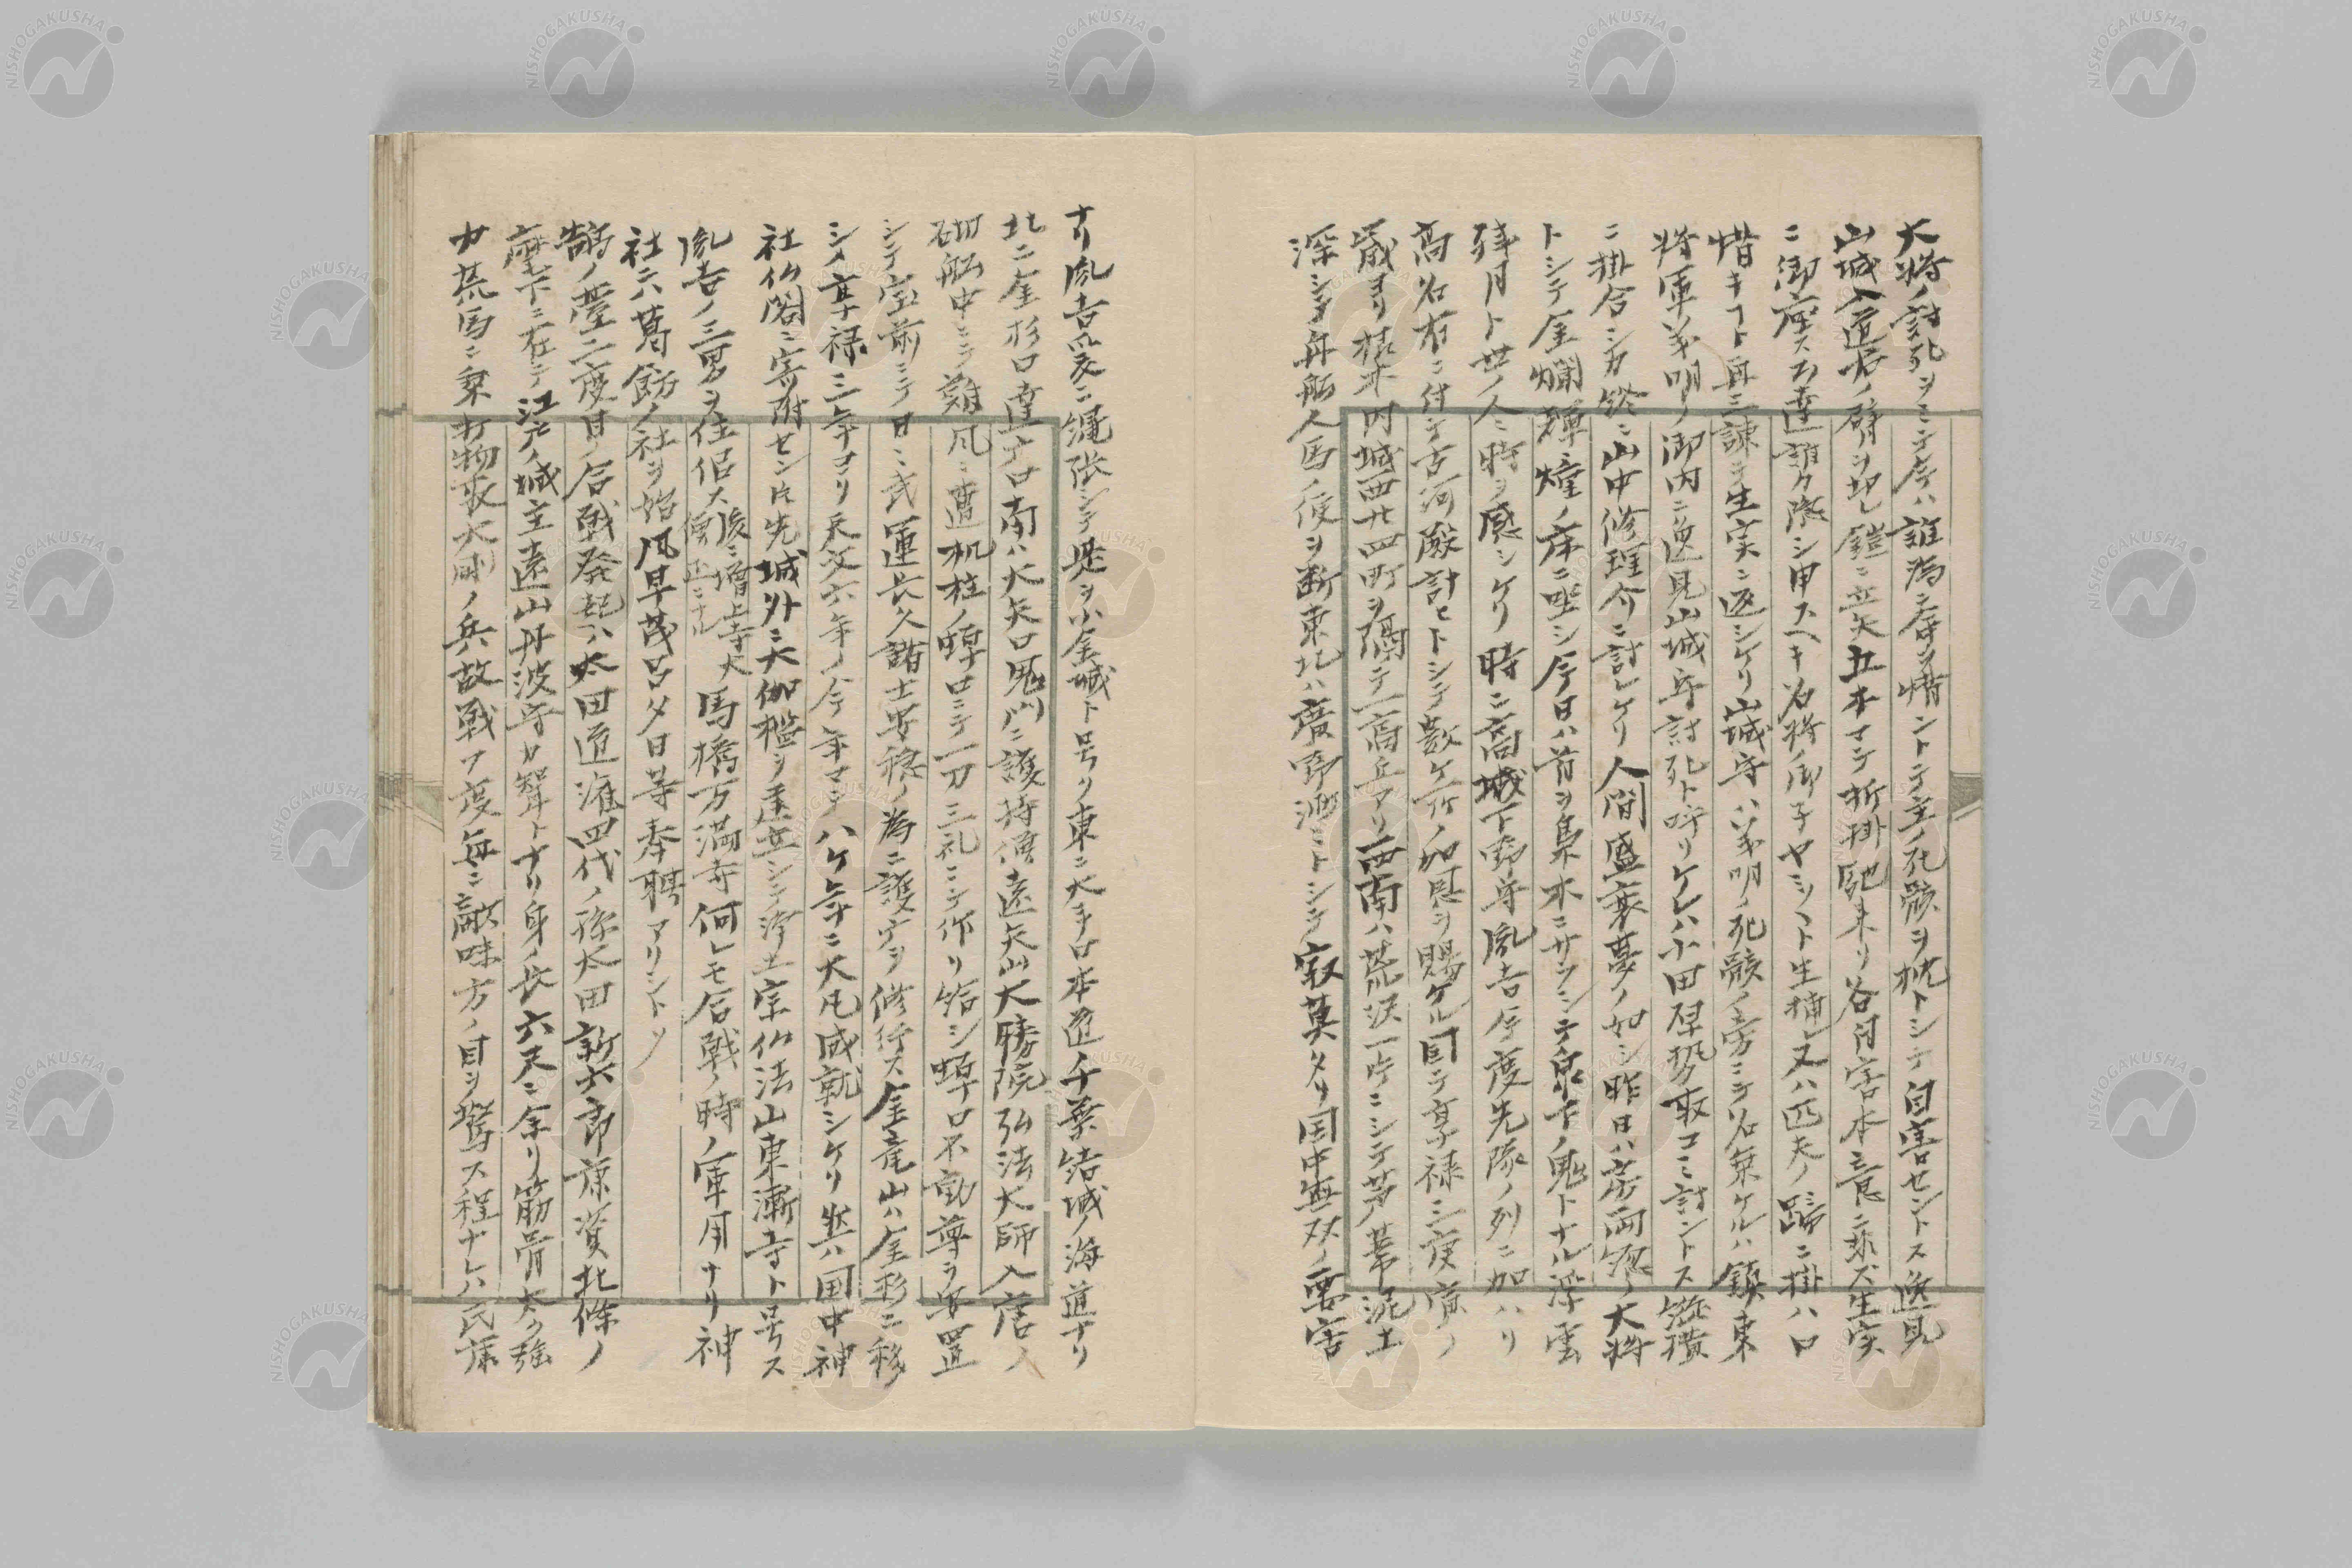 大将ノ討死ヲミテ今ハ誰為ニ命ヲ惜ントテ主ノ死骸ヲ枕トシテ自害セントス逸見
山城入道君ノ臂ヲ切レ鎧ニ立矢五本マテ折掛馳来リ谷自害本意ニ非ズ生実
ニ御座ス若達誰ク隠シ申スヘキ名将ノ御子ヤミ〳〵ト生捕レ又ハ匹夫ノ蹄ニ掛ハ口
惜キコト再三諌テ生実ニ返シケリ山城守ハ義明ノ死骸ノ旁ニテ名乗ケルハ鎮東
将軍義明ノ御内ニ逸見山城守討死ト呼リケレハ小田原勢取コミ討ントス縦横
ニ掛合シカ終ニ山中修理介ニ討レケリ人間盛衰夢ノ如シ昨日ハ房両総ノ大将
トシテ金爛輝燵ノ床ニ坐シ今日ハ首ヲ梟木ニサラシテ泉下ノ鬼トナル浮雲
残月ト世ノ人ニ時ヲ感シケリ時ニ高城下野守胤吉今度先隊ノ列ニ加ハリ
高名有ニ付テ古河殿計ヒトシテ数ケ所ノ加恩ヲ賜ケル因テ享禄三庚寅ノ
歳ヨリ根木内城西廿四町ヲ隔テ一高丘アリ西南ハ荒沢一片ニシテ芦葦泥土
深シテ舟船人馬ノ便ヲ断東北ハ広野漫ミトシテ寂莫タリ国中無双ノ要害
ナリ胤吉爰ニ縄張シテ是ヲ小金城ト号ク東ニ大手口本道千葉結城ノ海道ナリ
北ニ金杉口達广口南ハ大矢口鬼門ニ護持僧遠矢山大勝院弘法大師入唐ノ
砌船中ニテ難風ニ遭机柱ノ蟬口ニテ一刀三礼ニシテ作リ給シ蟬口不動尊ヲ安置
シテ宝前ニテ日ミ武運長久諸士安穏ノ為ニ護广ヲ修行ス金竜山ハ金杉ニ移
シメ享禄三年ヨリ天文六年ノ今年マテ八ケ年ニ大凡成就シケリ然ハ国中神
社仏閣ニ寄附セン片先城外ニ大伽檻ヲ建立シテ浄土宗仏法山東漸寺ト号ス
胤吉ノ三男ヲ住侶ス後ニ増上寺大僧正ニナル馬橋万満寺何レモ合戦ノ時ノ軍用ナリ神
社六葛飾ノ社ヲ始風早茂呂夕日等奉聘アリシトソ
鵠ノ台二度目ノ合戦発起ハ太田道灌四代ノ孫太田新六郎康資北條ノ
麾下ニ在テ江戸ノ城主遠山丹波守カ聟トナリ身ノ長六尺ニ余リ筋骨太ク強
力荒馬ニ乗打物取大剛ノ兵故戦フ度毎ニ敵味方ノ目ヲ驚ス程ナレハ氏康